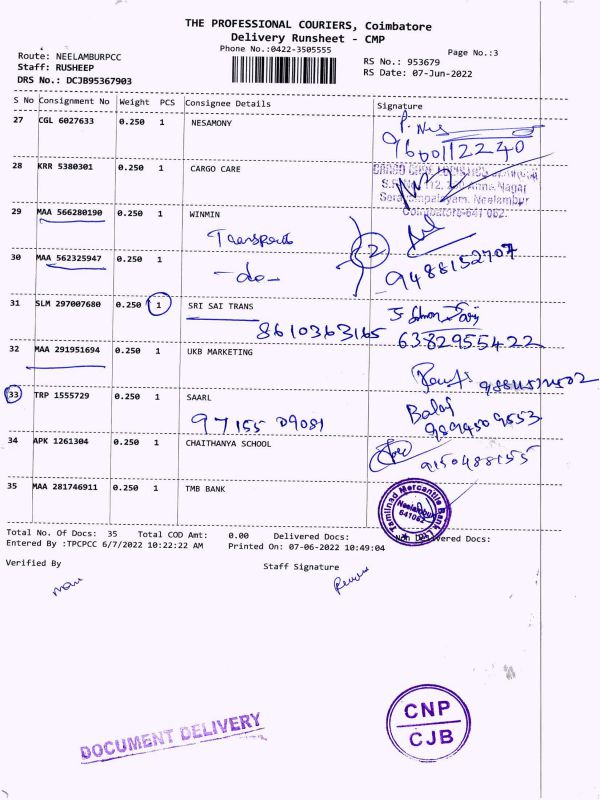 THE PROFESSIONAL COURIERS, Coimbatore
Delivery Runsheet - CMP
Phone No.:0422-3505555
Page No.:3
Route: NEELAMBURPCC
Staff: RUSHEEP
DRS No.: DCJB95367903
RS No.: 953679
RS Date: 07-Jun-2022
S No Consignment No Weight PCS Consignee Details Signature
27 CGL 6027633 0.250 1 NESAMONY
9600112240
28 KRR 5380301 0.250 1 CARGO CARE
Coimbatore-641 062.
29 MAA 566280190 0.250 1 WINMIN
Transport
2
30 MAA 562325947 0.250 1
-do-
9488152707
31 SLM 297007680 0.250 1 SRI SAI TRANS
8610363165
6382955422
32 MAA 291951694 0.250 1 UKB MARKETING
33 TRP 1555729 0.250 1 SAARL
97155 09081
Balaj
9894509553
34 APK 1261304 0.250 1 CHAITHANYA SCHOOL
9150488155
35 MAA 281746911 0.250 1 TMB BANK
Tamilnad Mercantile Bank Ltd
Neelambur
641062
Total No. Of Docs: 35 Total COD Amt: 0.00 Delivered Docs: Non Delivered Docs:
Entered By :TPCPCC 6/7/2022 10:22:22 AM Printed On: 07-06-2022 10:49:04
Verified By Staff Signature
DOCUMENT DELIVERY
CNP
CJB